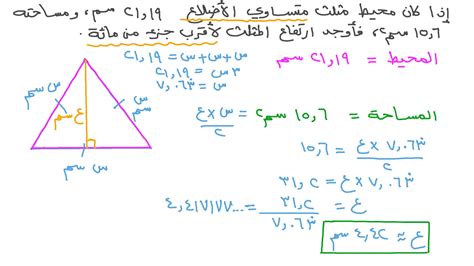 إذا كان محيط مثلث متساوي الأضلاع ٢١٫١٩ سم، ومساحته
١٥٫٦ سم٢، فأوجد ارتفاع المثلث لأقرب جزء من مائة.
المحيط = ٢١٫١٩ سم
س + س + س = ٢١٫١٩
٣ س = ٢١٫١٩
س = ٧٫٠٦٣
س سم
س سم
ع سم
س سم
المساحة = ١٥٫٦ سم٢ = س × ع / ٢
١٥٫٦ = ٧٫٠٦٣ × ع / ٢
٣١٫٢ = ٧٫٠٦٣ × ع
ع = ٣١٫٢ / ٧٫٠٦٣ = ٤٫٤١٧١٧٧...
ع ≈ ٤٫٤٢ سم